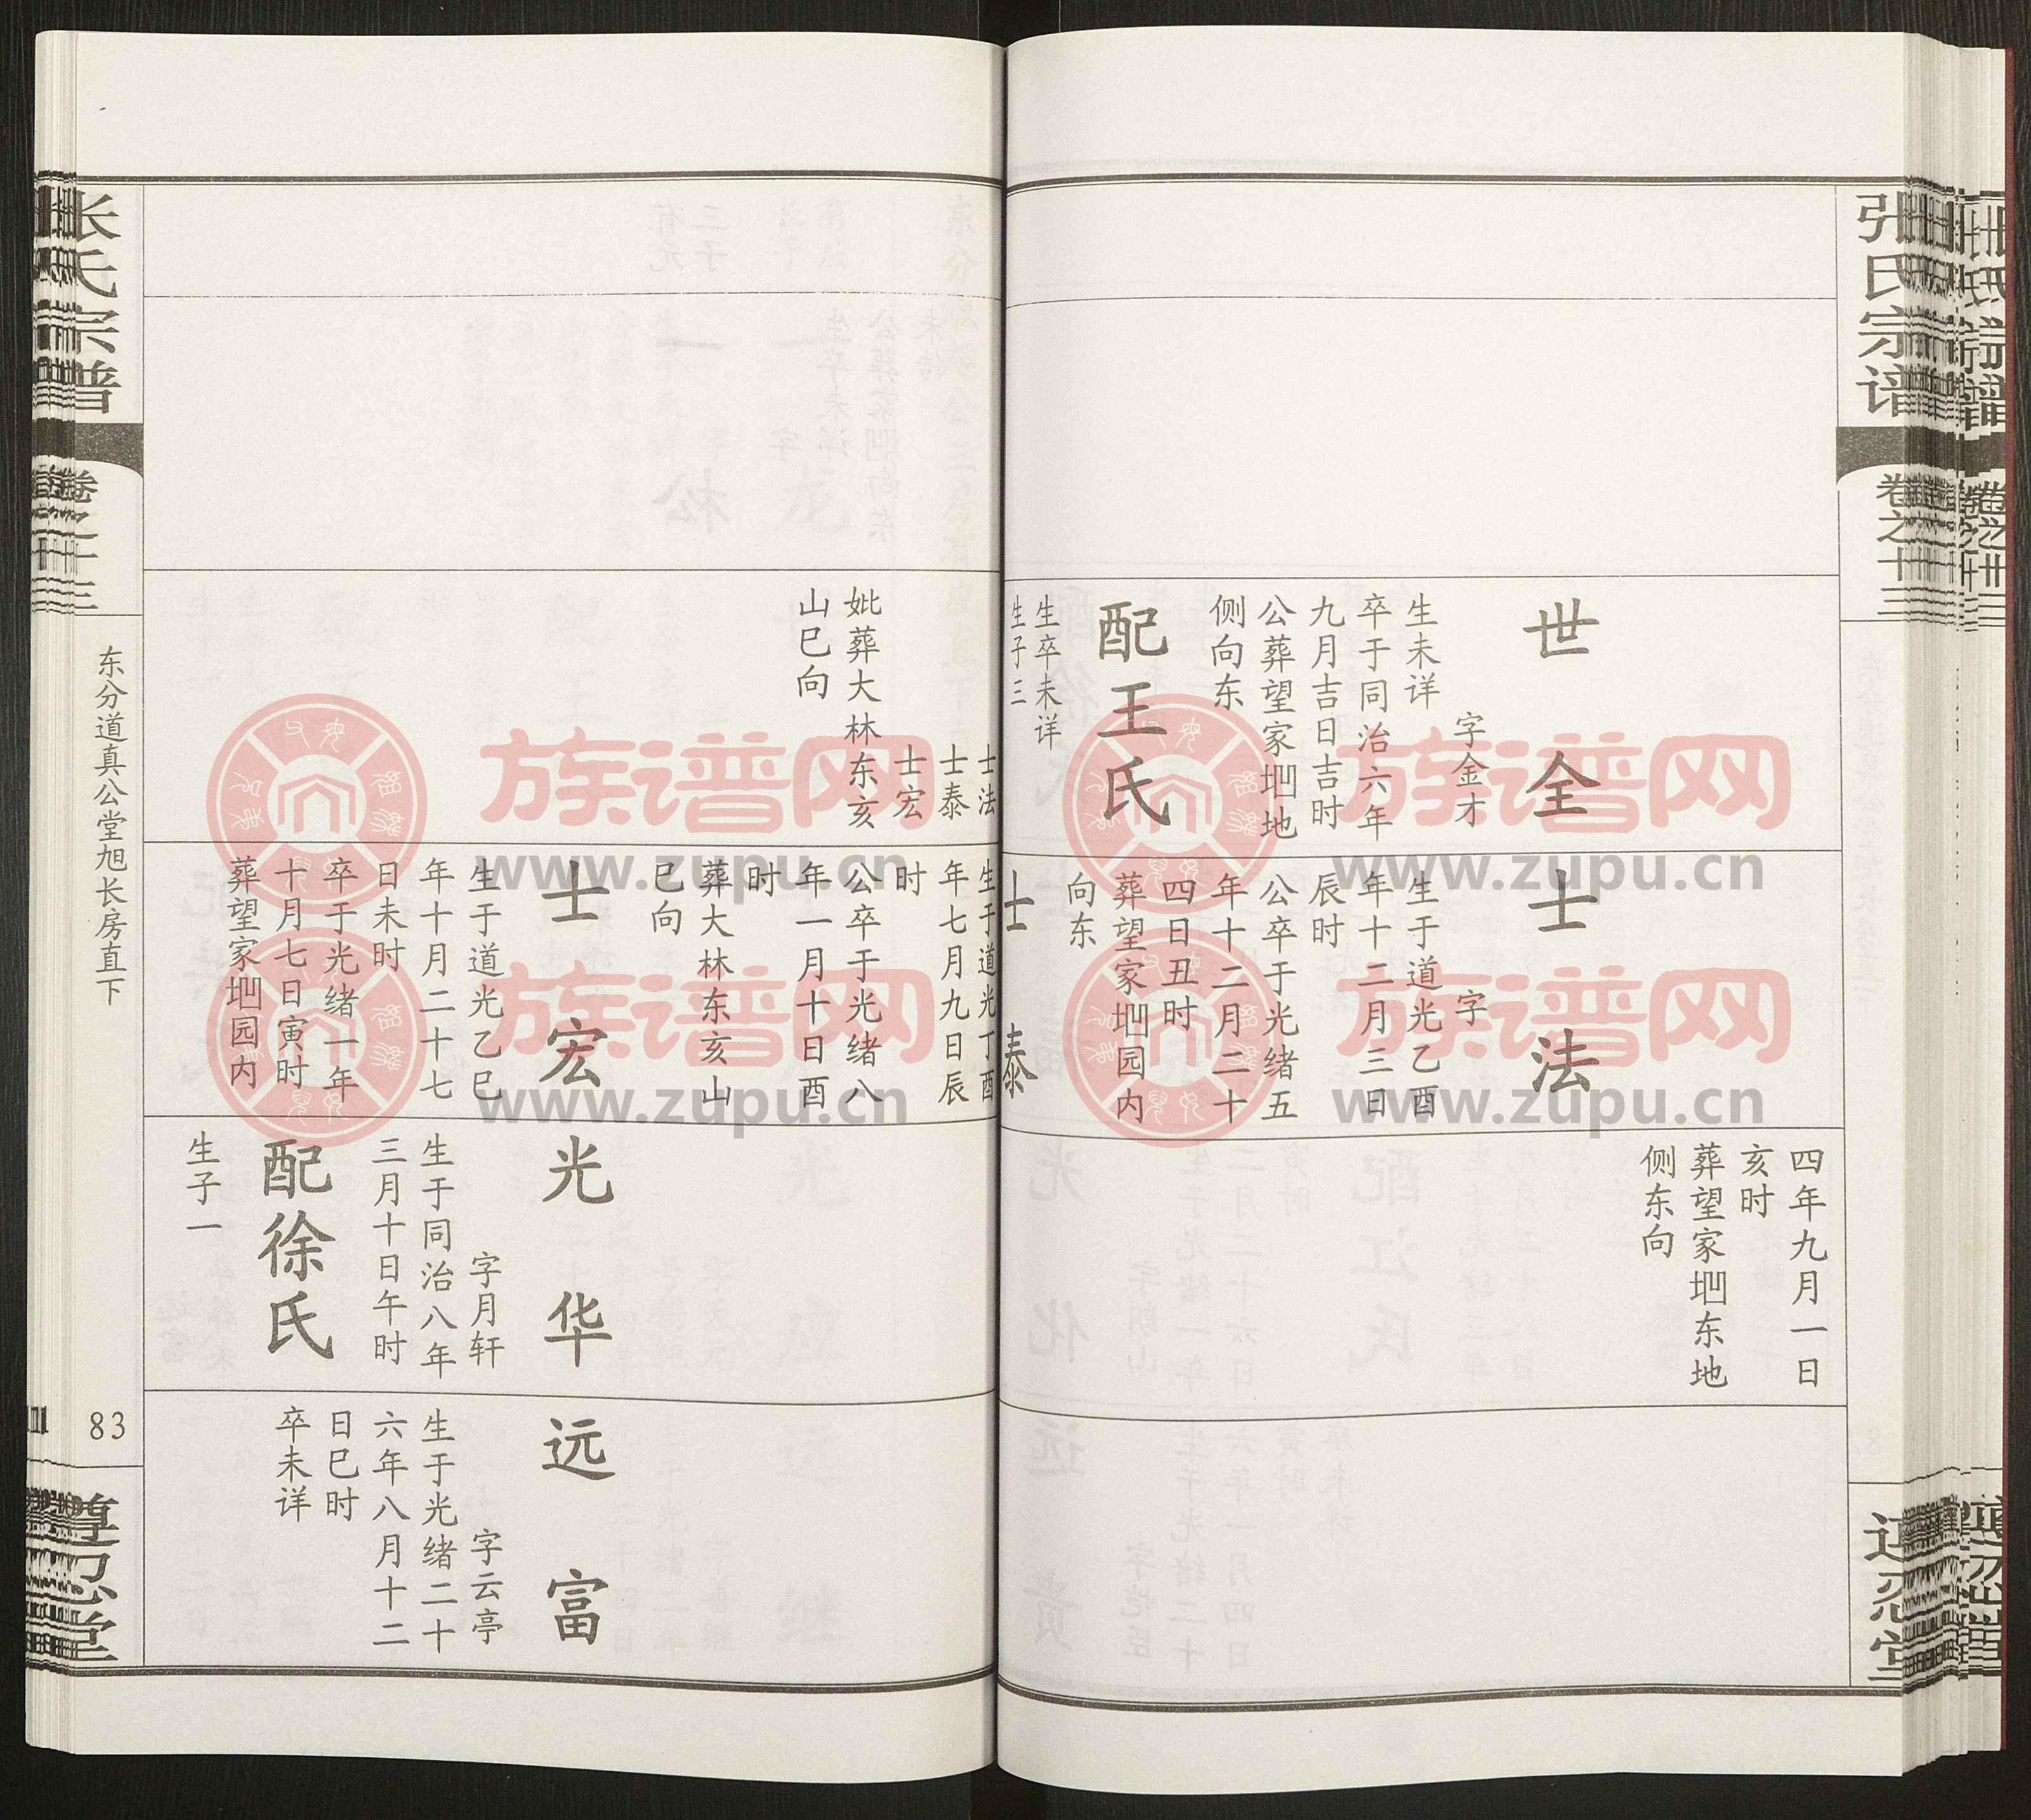 张氏宗谱
卷之十三
世全
字金才
生未详
卒于同治六年
九月吉日吉时
公葬望家坳地
侧向东
配王氏
生卒未详
生子三
士法
士泰
士宏
妣葬大林东亥
山巳向
士法
字
生于道光乙酉
年十二月三日
辰时
公卒于光绪五
年十二月二十
四日丑时
葬望家坳园内
向东
士泰
生于道光丁酉
年七月九日辰
时
公卒于光绪八
年一月十日酉
时
葬大林东亥山
巳向
士宏
生于道光乙巳
年十月二十七
日未时
卒于光绪一年
十月七日寅时
葬望家坳园内
四年九月一日
亥时
葬望家坳东地
侧东向
光华
字月轩
生于同治八年
三月十日午时
配徐氏
生子一
远富
字云亭
生于光绪二十
六年八月十二
日巳时
卒未详
张氏宗谱
卷之十三
东分道真公堂旭长房直下
83
尊忍堂
族谱网
www.zupu.cn
族谱网
www.zupu.cn
族谱网
www.zupu.cn
族谱网
www.zupu.cn